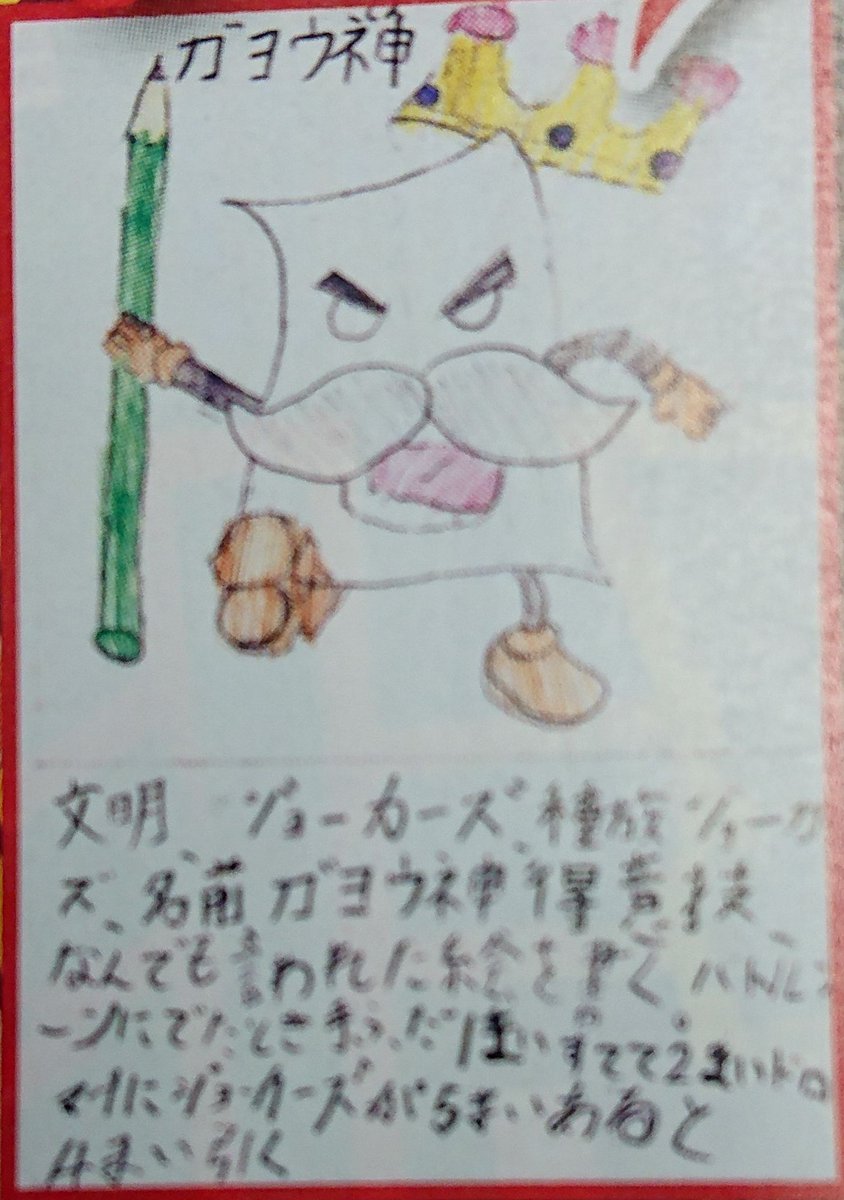 ガヨウ神
文明、ジョーカーズ、種族ジョーカ
ズ、名前ガヨウ神得意技
なんでも言われた絵をかく バトルゾ
ーンにでたとき 1まいすてて2まいドロ
にジョーカーズが5まいあると
4まい引く